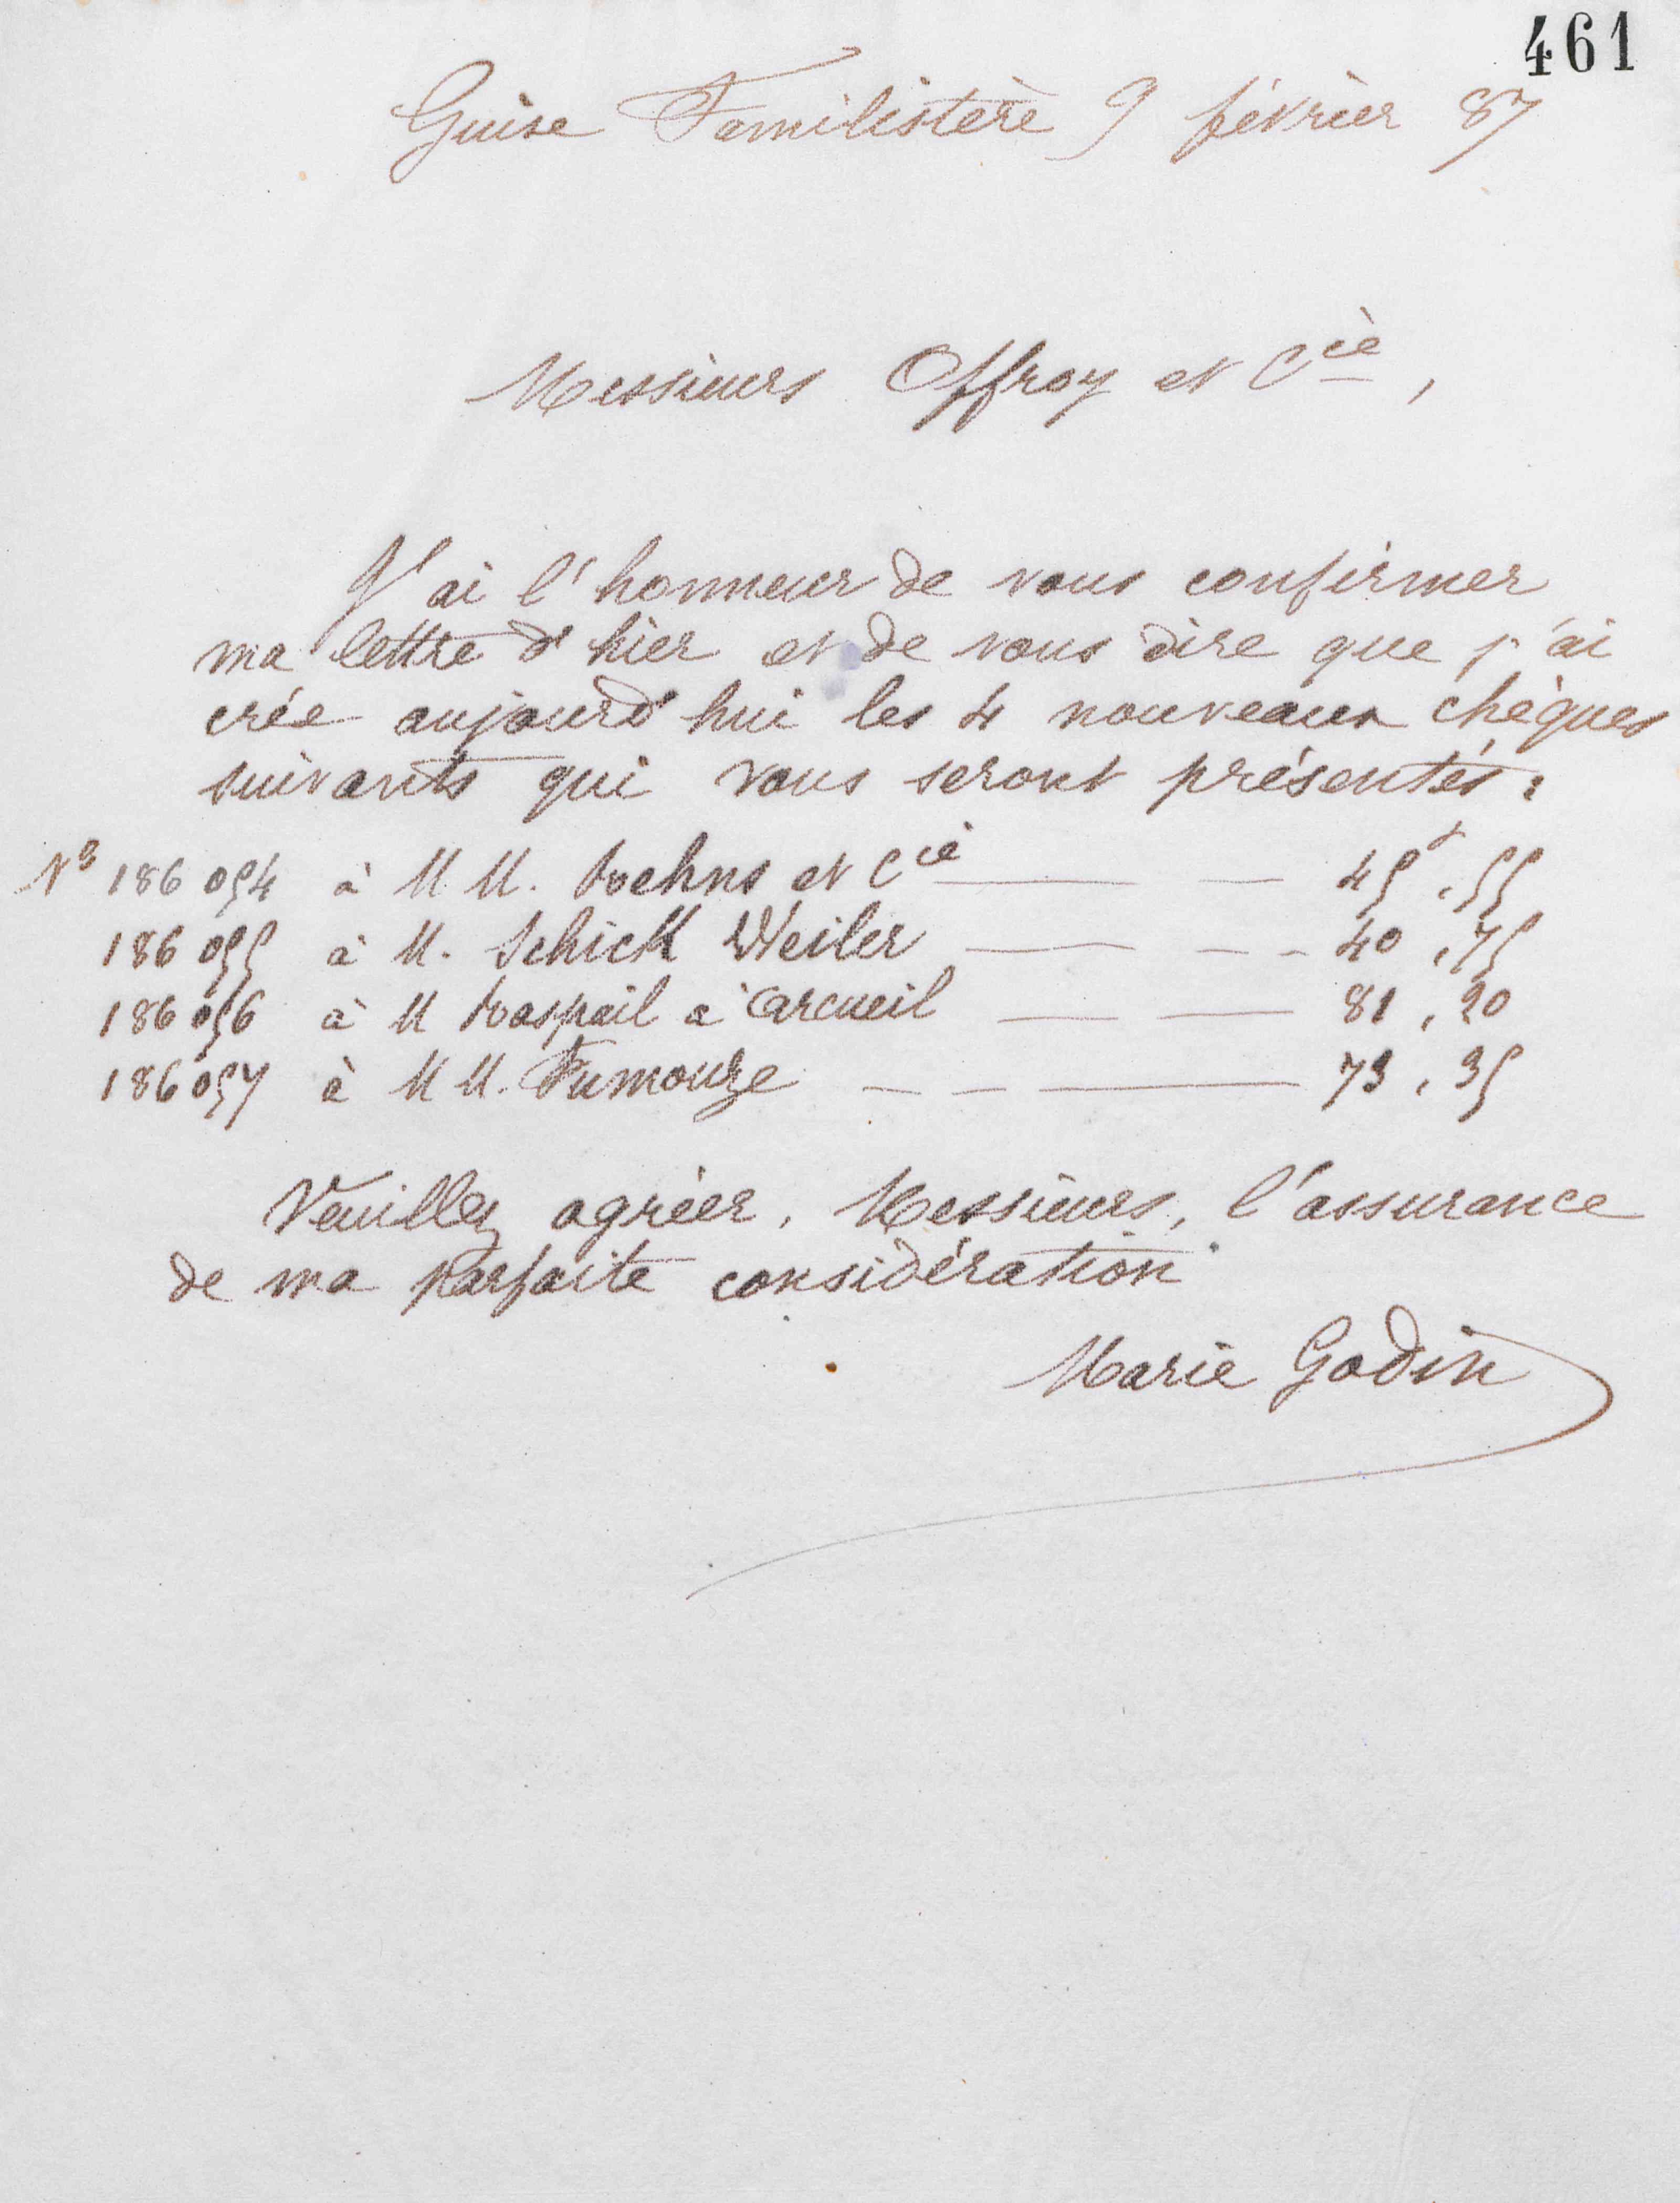 461
Guise Familistère 9 février 87
Messieurs Offroy et Cie,
J'ai l'honneur de vous confirmer
ma lettre d'hier et de vous dire que j'ai
crée aujourd'hui les 4 nouveaux chèques
suivants qui vous seront présentés :
Nos 186 054 à M M. et Cie 45f,55
186 055 à M. Schick Weiler 40,75
186 056 à M Raspail à Arcueil 81,20
186 057 à M M. Fumouze 73,35
Veuillez agréer, Messieurs, l'assurance
de ma parfaite considération
Marie Godin